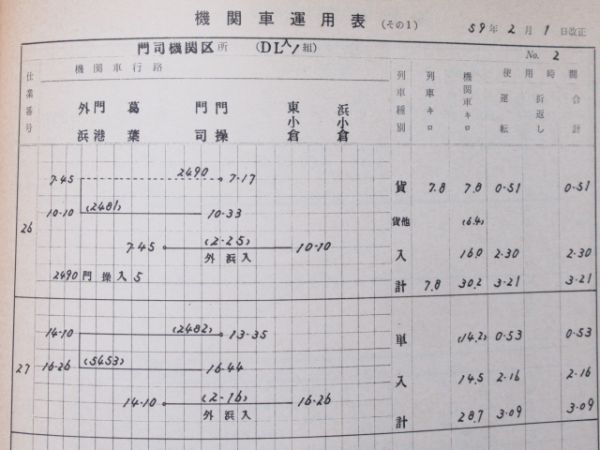 機関車運用表 (その1) 59年2月1日改正
門司機関区所 (DL入1組) No. 2
仕業番号 機関車行路 列車種別 列車キロ 機関車キロ 使用時間
運転 折返し 合計
外浜 門港 葛葉 門司 門操 東小倉 浜小倉
7.45 2490 7.17 貨 7.8 7.8 0-51 0-51
10-10 (2481) 10-33 貨他 (6.4)
26
7.45 (2-25) 10-10 入 16.0 2-30 2-30
外浜入
2490門操入5 計 7.8 30.2 3-21 3-21
14-10 (2482) 13-35 単 (14.2) 0-53 0-53
27 16-26 (5453) 16-44
14-10 (2-16) 16-26 入 14.5 2-16 2-16
外浜入
計 28.7 3-09 3-09